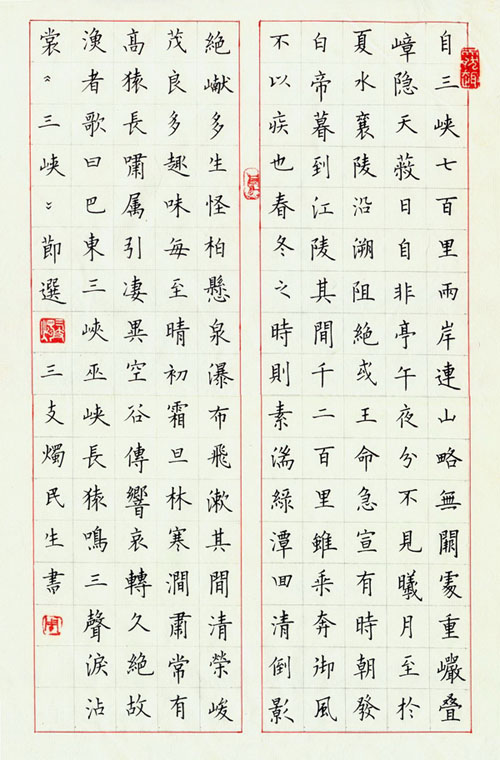 自三峽七百里兩岸連山略無闕處重巖叠
嶂隐天蔽日自非亭午夜分不見曦月至於
夏水襄陵沿溯阻絕或王命急宣有時朝發
白帝暮到江陵其間千二百里雖乘奔御風
不以疾也春冬之時則素湍綠潭回清倒影
絕巘多生怪柏懸泉瀑布飛漱其間清榮峻
茂良多趣味每至晴初霜旦林寒澗肅常有
高猿長嘯属引凄異空谷傳響哀轉久絕故
漁者歌曰巴東三峽巫峽長猿鳴三聲淚沾
裳〝三峽〟節選三支燭民生書